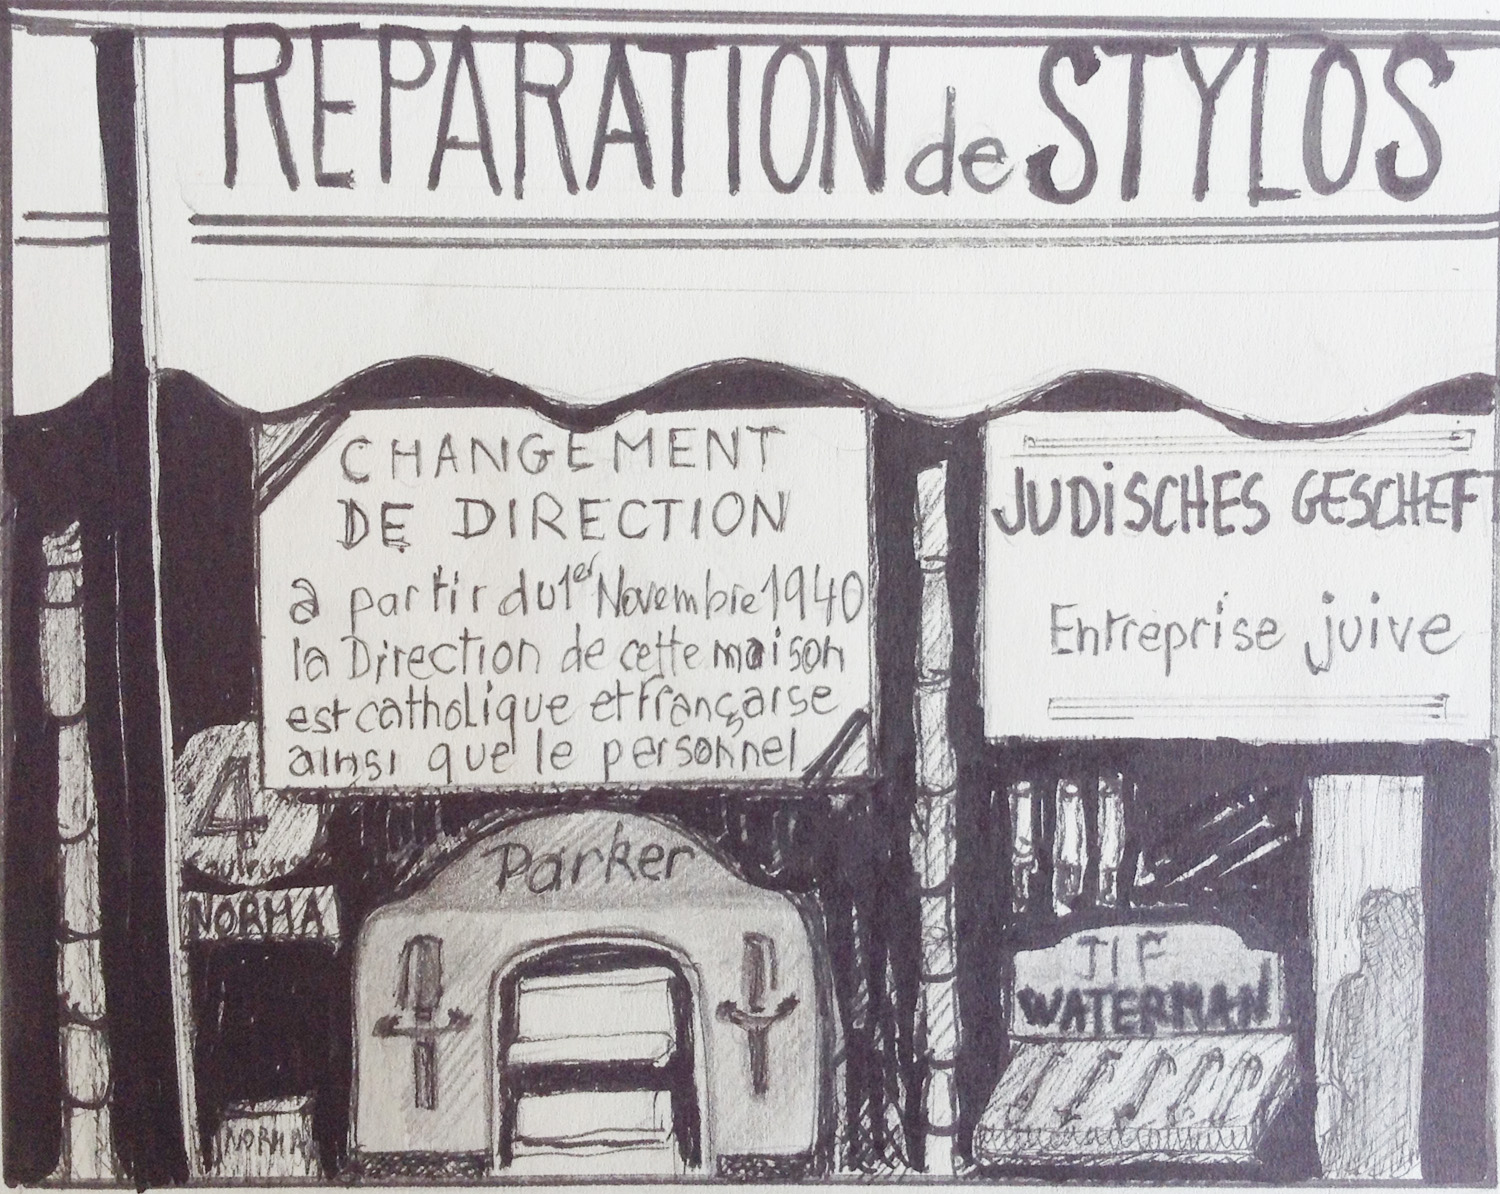 REPARATION de STYLOS
CHANGEMENT
DE DIRECTION
a partir du 1er Novembre 1940
la Direction de cette maison
est catholique et française
ainsi que le personnel
JUDiSCHES GESCHEFT
Entreprise juive
4
couleurs
NORMA
Parker
JIF
WATERMAN
NORMA